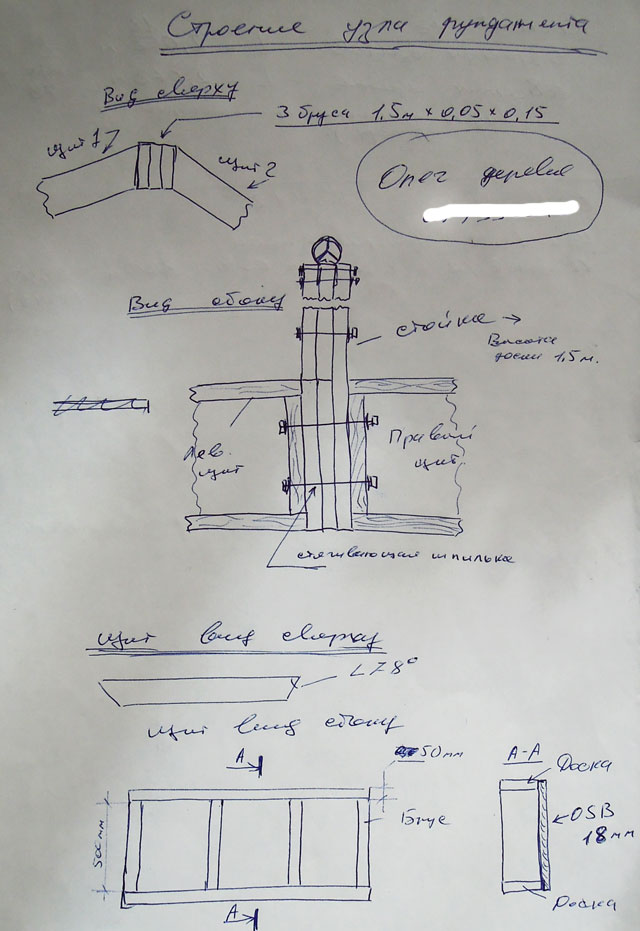 Строение узла фундамента
Вид сверху
3 бруса 1,5м × 0,05 × 0,15
щит 1
щит 2
Олег деревня
Вид сбоку
стойка →
Высота
доски 1,5 м.
Лев.
щит
Правый
щит.
стягивающая шпилька
щит вид сверху
∠78°
щит вид сбоку
А
50мм
А-А
Доска
500мм
Брус
OSB
18мм
А
Доска